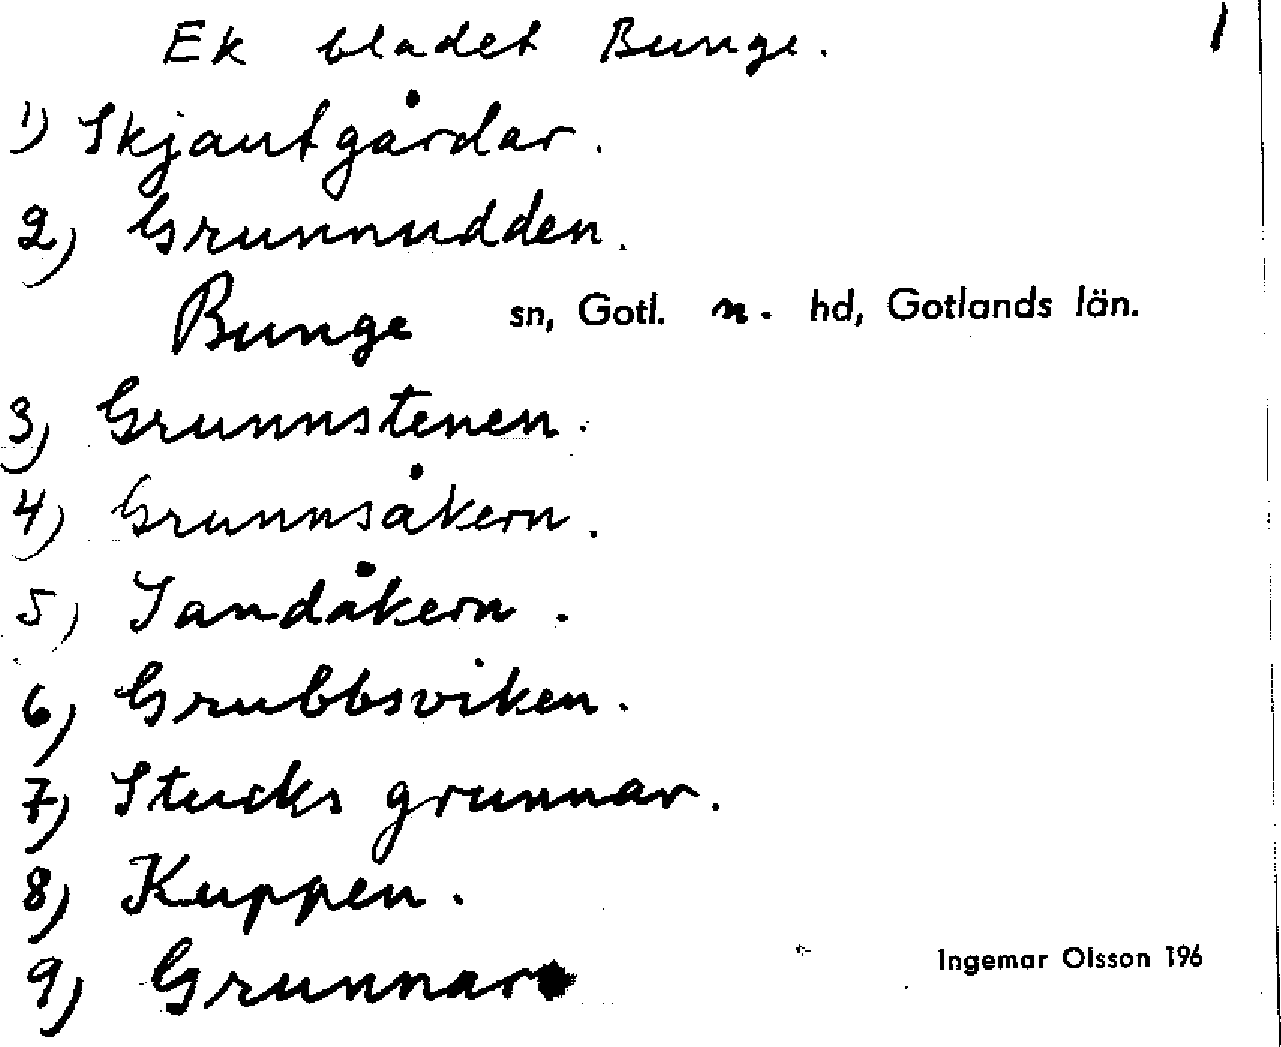 Ek bladet Bunge. 1
1) Skjautgårdar.
2) Grunnudden.
Bunge sn, Gotl. n. hd, Gotlands län.
3) Grunnstenen.
4) Grunnsåkern.
5) Sandåkern.
6) Grubbsviken.
7) Stucks grunnar.
8) Kuppen.
9) Grunnar
Ingemar Olsson 196